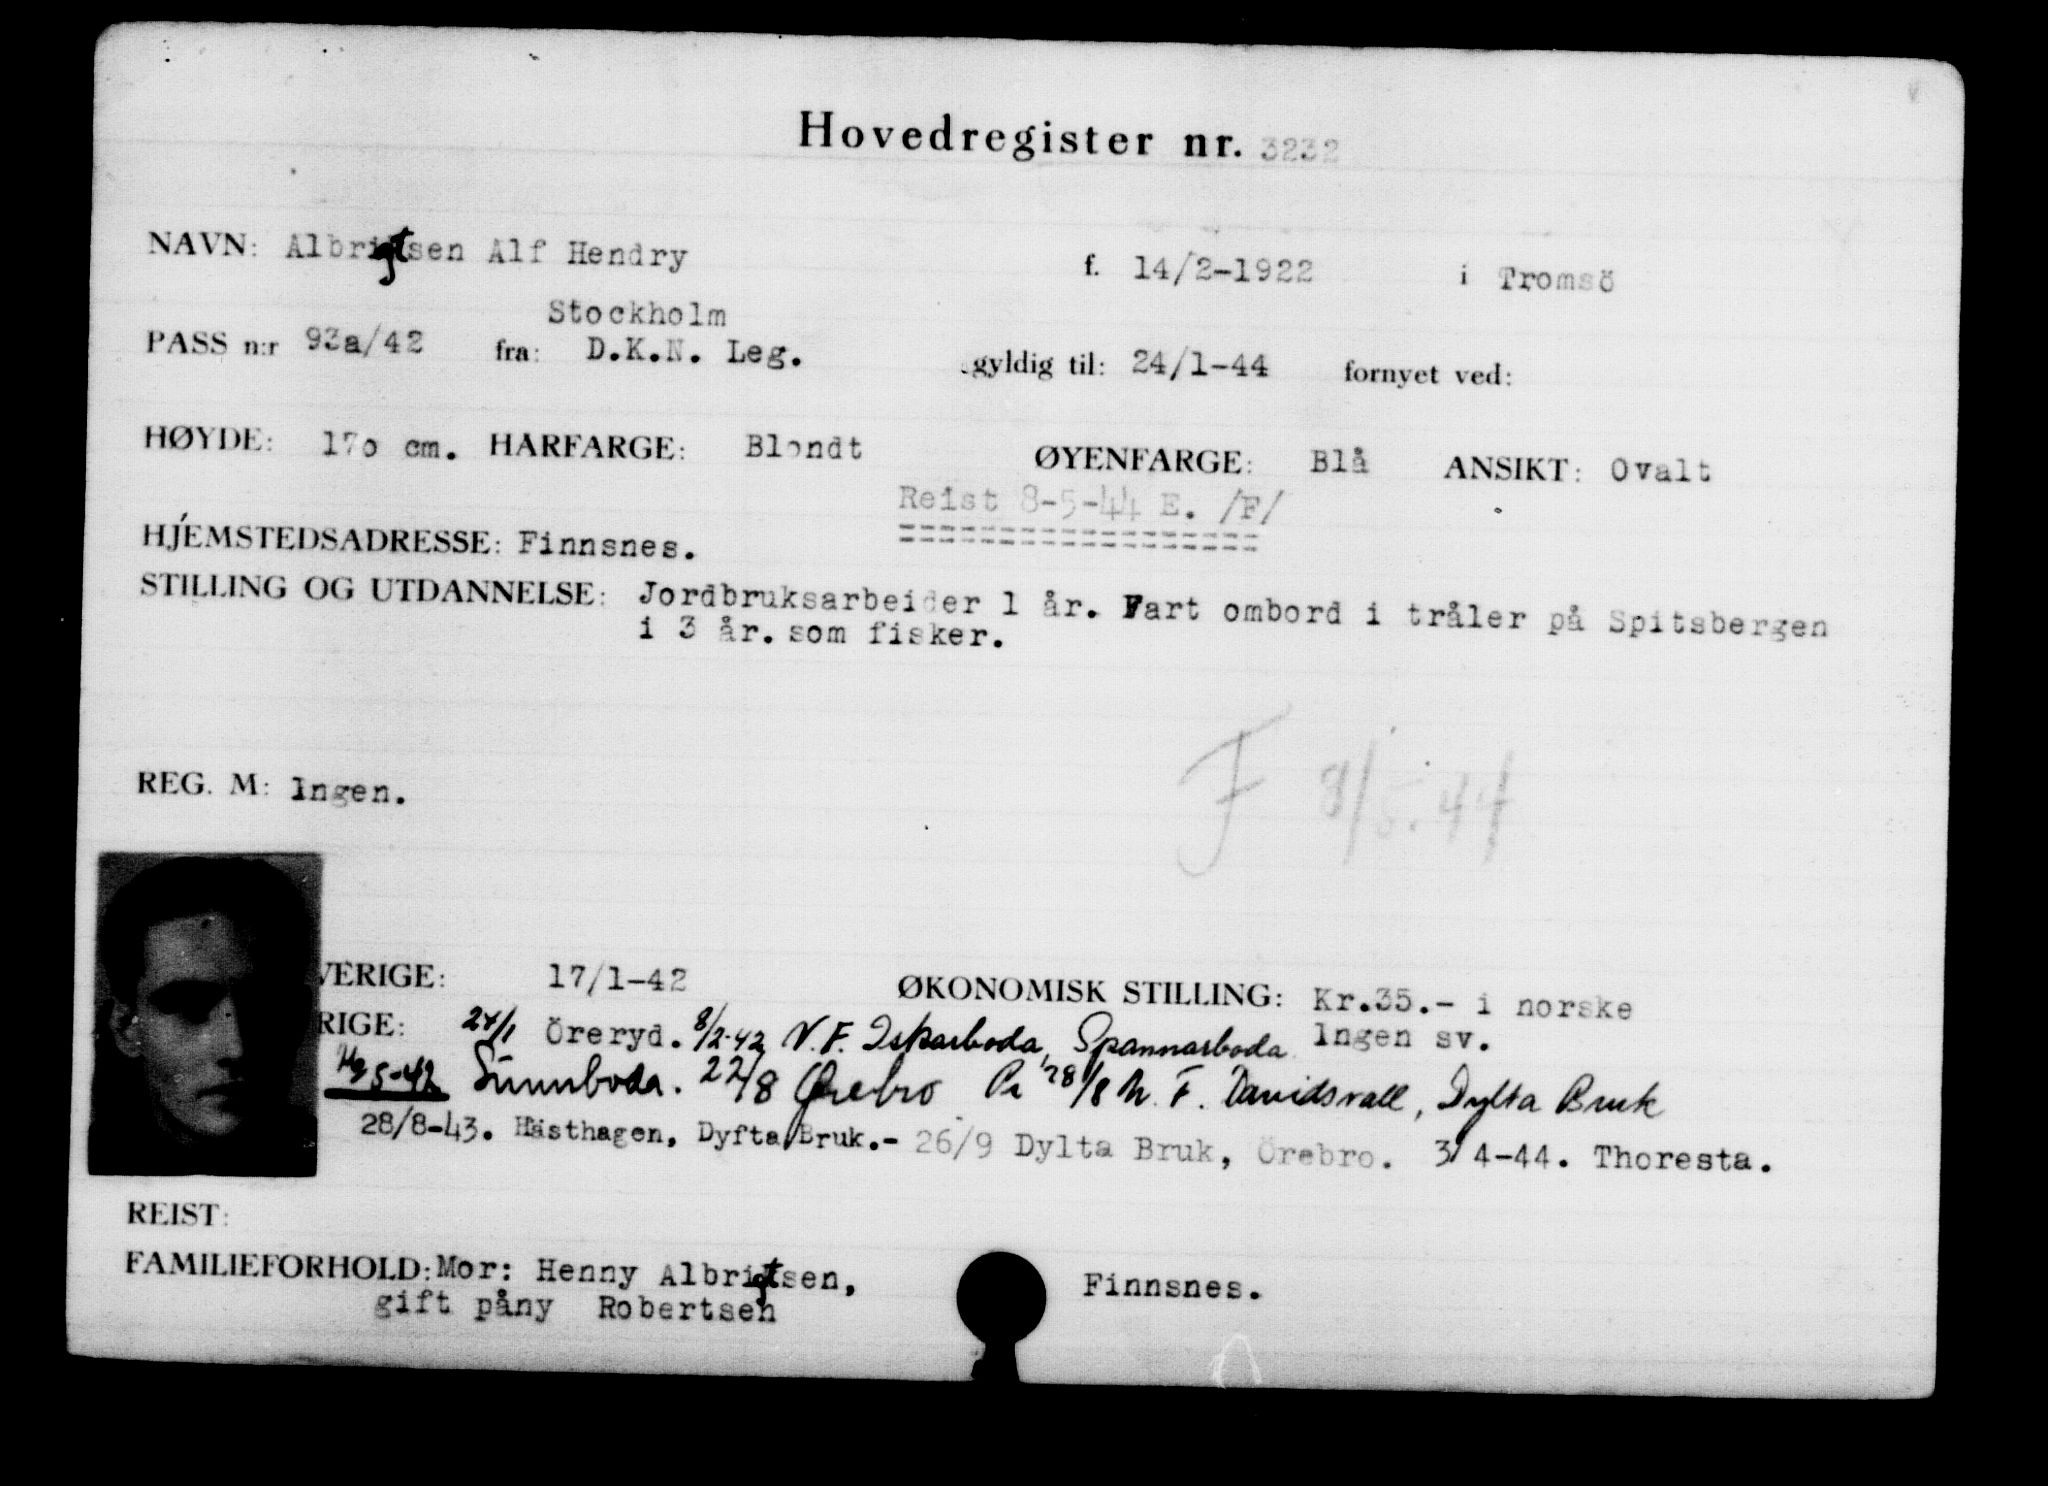 Hovedregister nr. 3232
NAVN: Albrigtsen Alf Hendry f. 14/2-1922 i Tromsö
Stockholm
PASS n:r 93a/42 fra: D.K.N. Leg. gyldig til: 24/1-44 fornyet ved:
HØYDE: 170 cm. HÅRFARGE: Blondt ØYENFARGE: Blå ANSIKT: Ovalt
Reist 8-5-44 E. /F/
HJEMSTEDSADRESSE: Finnsnes.
STILLING OG UTDANNELSE: Jordbruksarbeider 1 år. Fart ombord i tråler på Spitsbergen
i 3 år. som fisker.
F 8/5.44
REG. M: Ingen.
VERIGE: 17/1-42 ØKONOMISK STILLING: Kr.35.- i norske
RIGE: 24/1 Öreryd. 8/2-42 V.F. Iskarboda, Spannarboda Ingen sv.
5-42 Sünnboda. 22/8 Ørebro 28/8 V. F. Davidsvall, Dylta Bruk
28/8-43. Hästhagen, Dyfta Bruk.- 26/9 Dylta Bruk, Örebro. 3/4-44. Thoresta.
REIST:
FAMILIEFORHOLD: Mor: Henny Albrigtsen, Finnsnes.
gift påny Robertsen